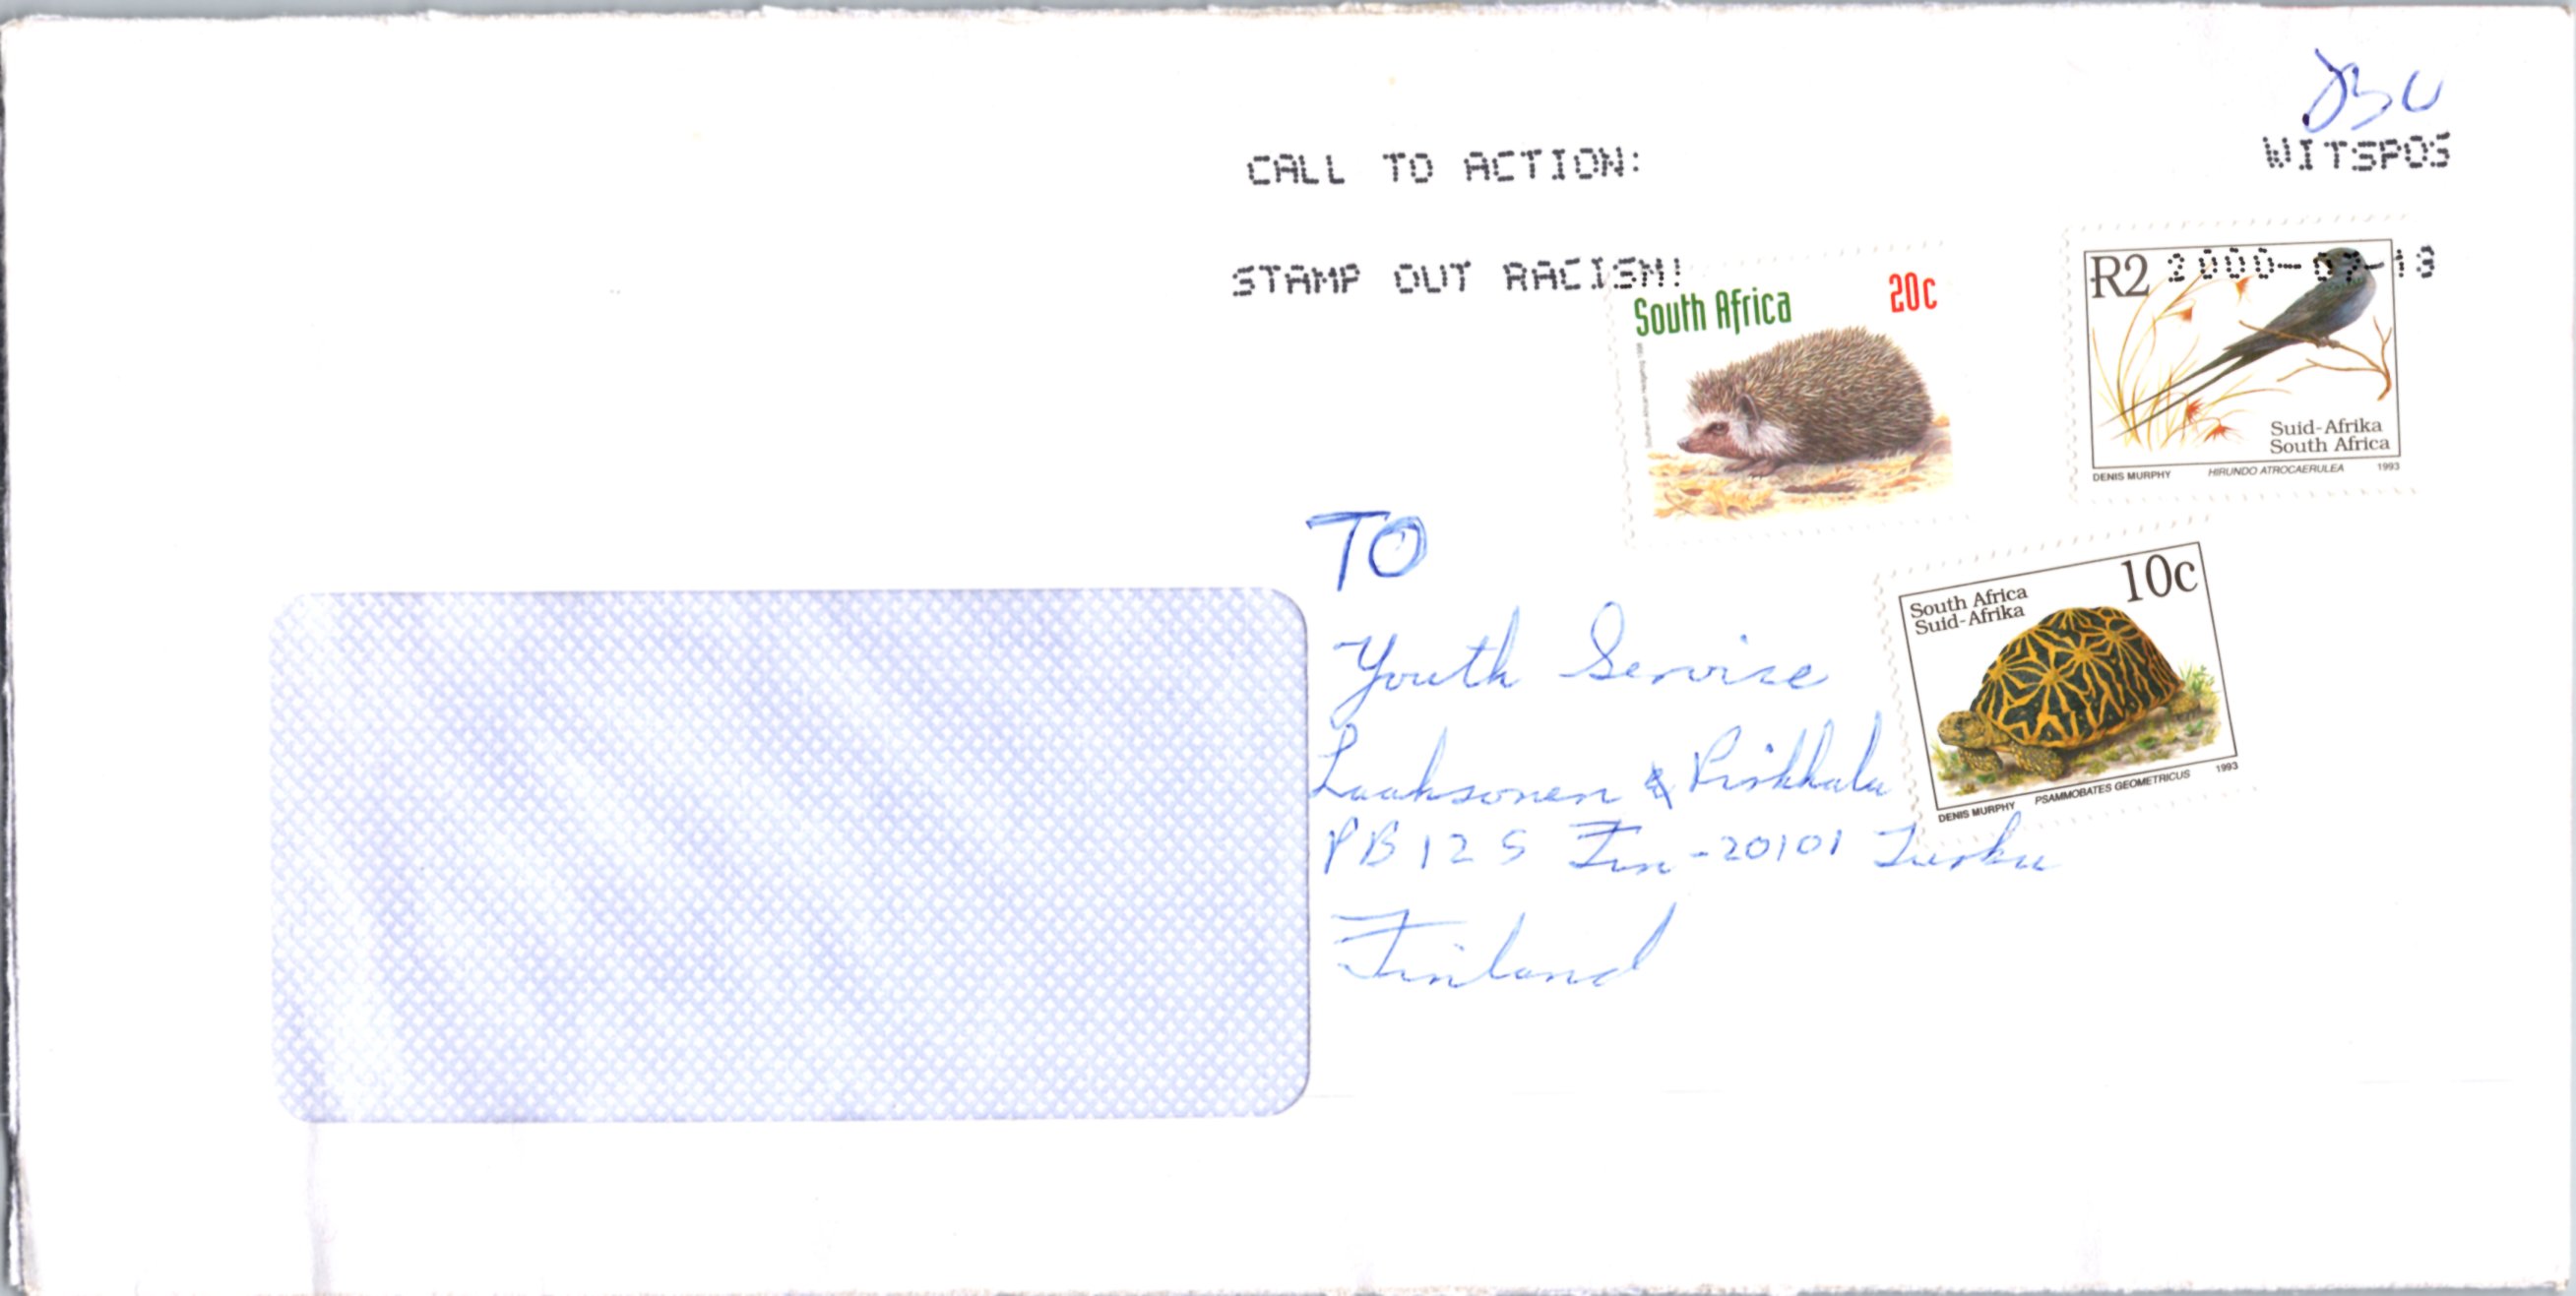 WITSPOS
CALL TO ACTION:
STAMP OUT RACISM!
2000-07-13
South Africa 20c
R2
Suid-Afrika
South Africa
DENIS MURPHY HIRUNDO ATROCAERULEA 1993
10c
South Africa
Suid-Afrika
DENIS MURPHY PSAMMOBATES GEOMETRICUS 1993
TO
Youth Service
Laaksonen & Pirkkala
PB 125 Fin-20101 Turku
Finland